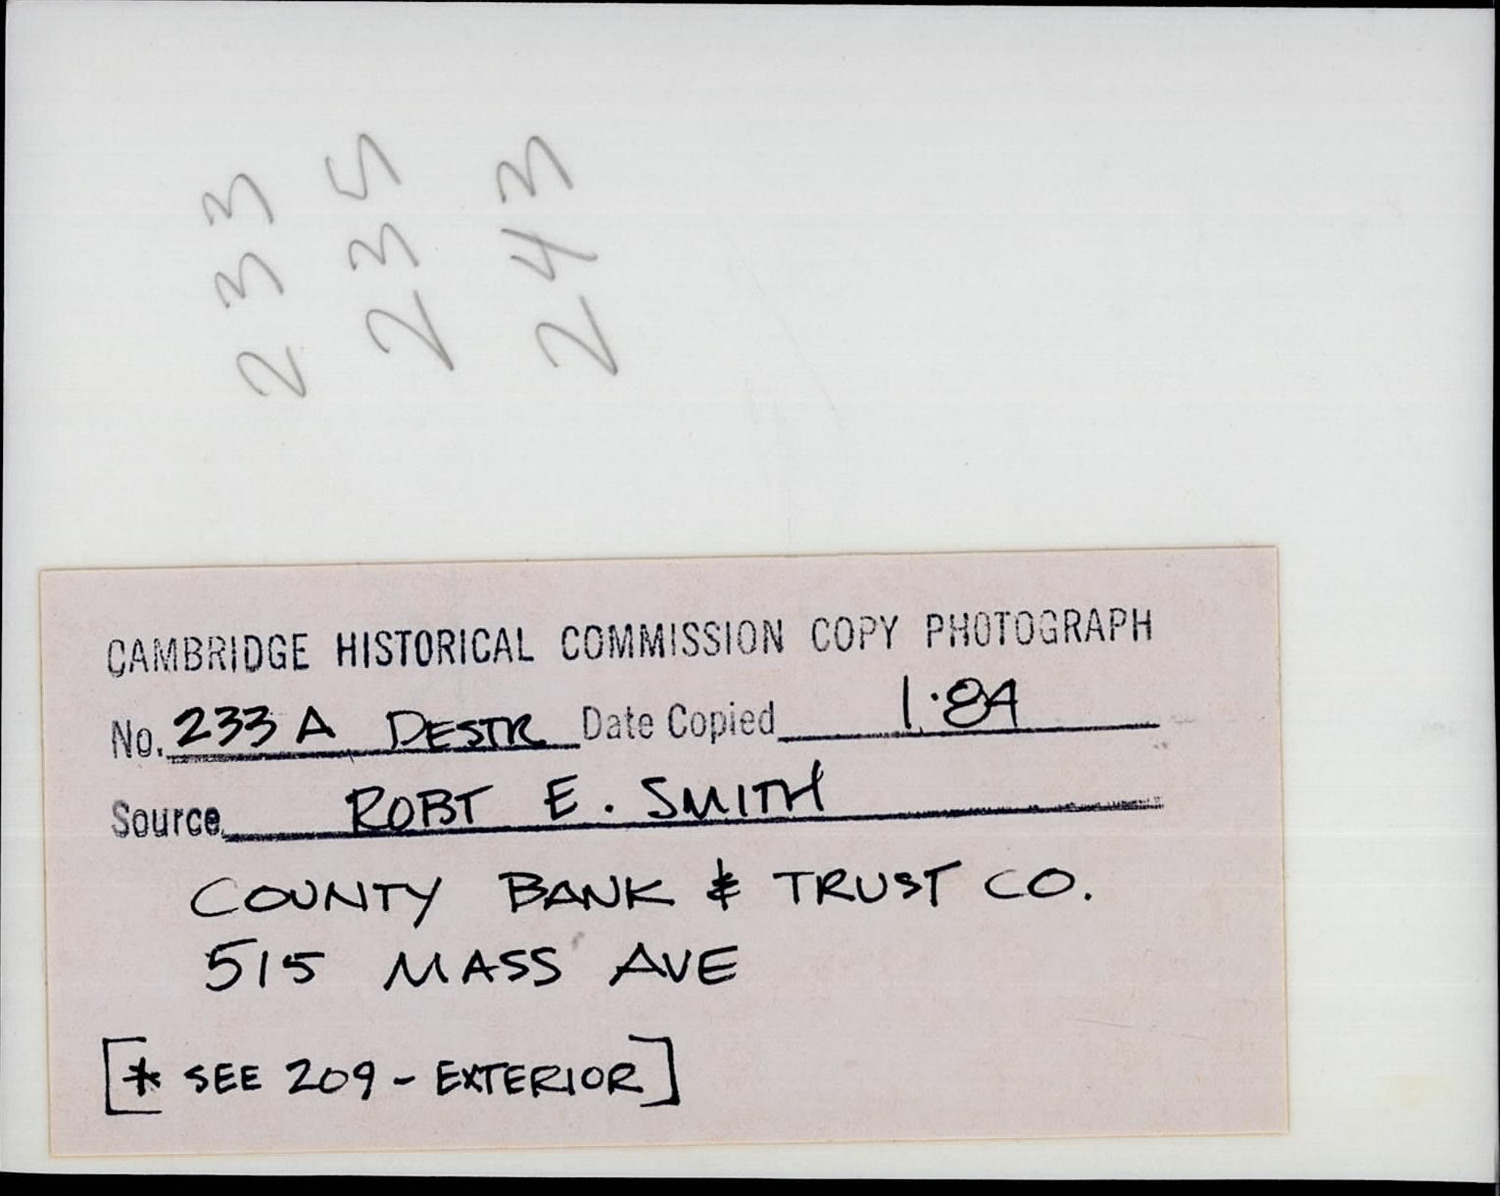 233
235
243
CAMBRIDGE HISTORICAL COMMISSION COPY PHOTOGRAPH
No. 233 A DESTR Date Copied 1.84
Source ROBT E. SMITH
COUNTY BANK & TRUST CO.
515 MASS AVE
[* SEE 209 - EXTERIOR]